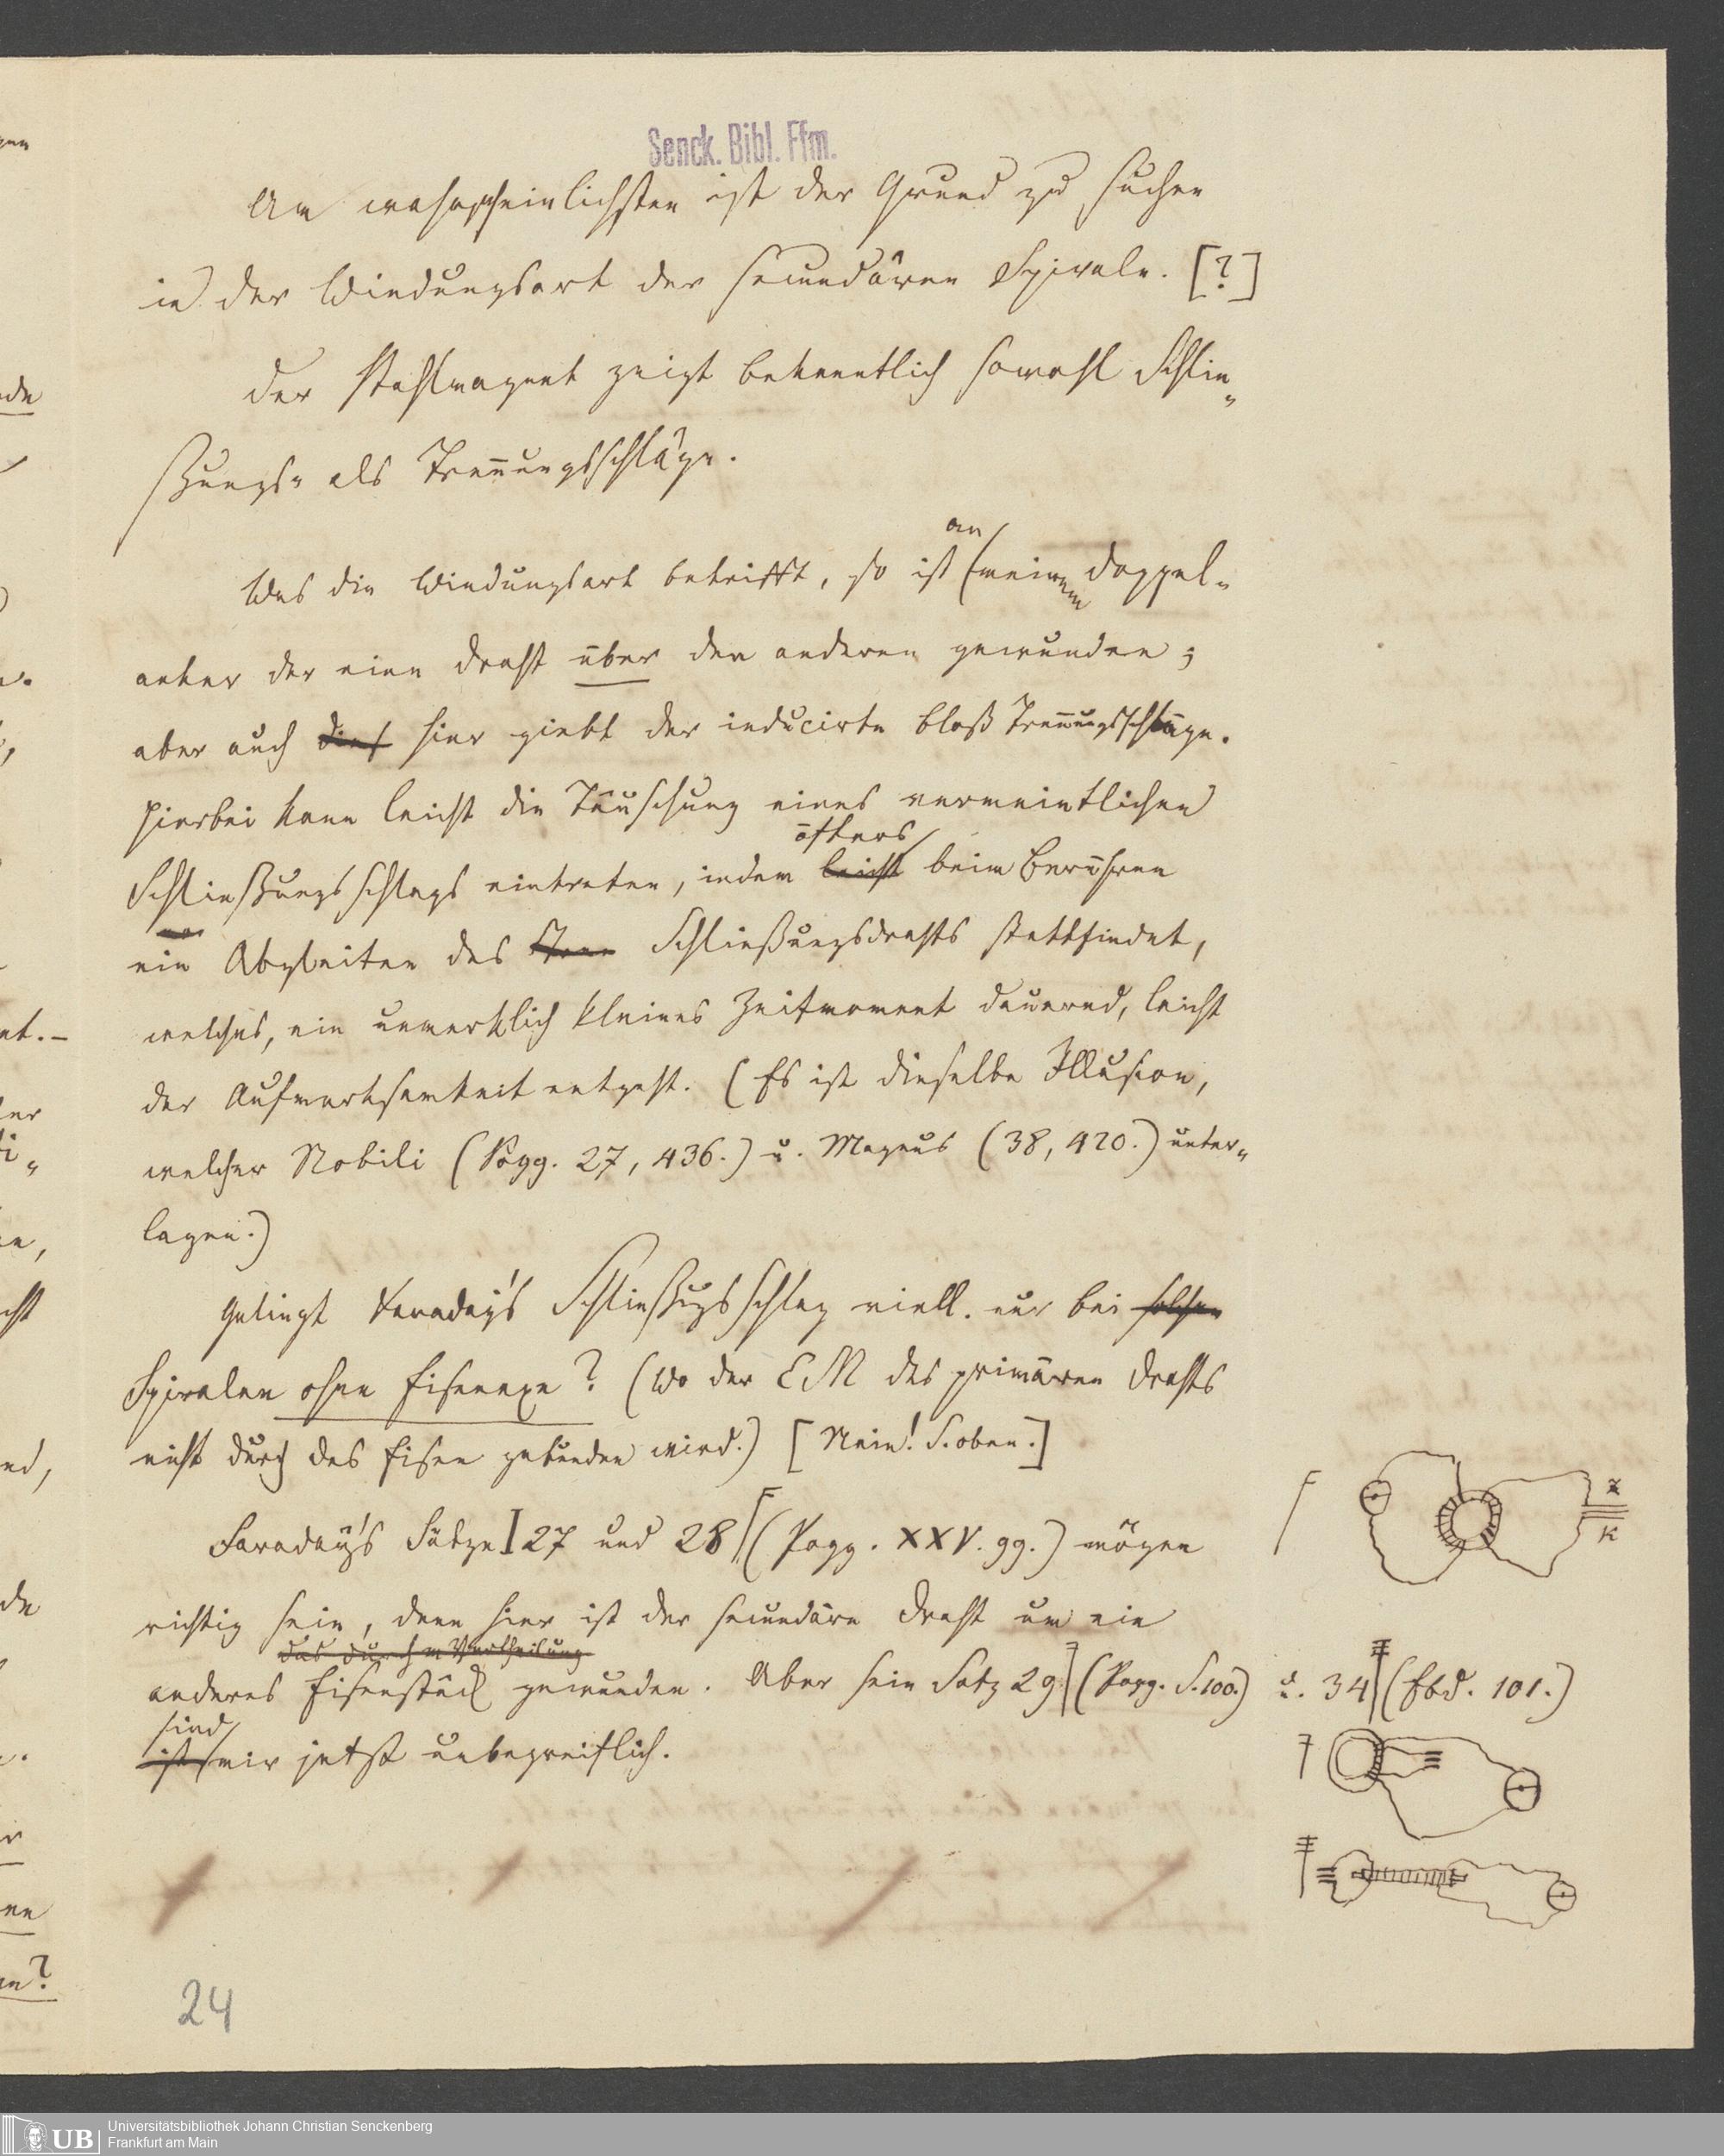 Senck. Bibl. Ffm.
Am wahrscheinlichsten ist der Grund zu suchen
in der Windungsart der secundären Spirale. [?]
Der Stahlmagnet zeigt bekanntlich sowohl Schlie„
ßungs„ als Trennungsschläge.
an
Was die Windungsart betrifft, so ist meinem Doppel„
anker der eine Draht über den anderen gewunden;
aber auch dies hier giebt der inducirte bloß Trennungsschläge.
Hierbei kann leicht die Täuschung eines vermeintlichen
öfters
Schließungsschlags eintreten, indem leicht beim Berühren
ein Abgleiten des Schließungsdrahts stattfindet,
welches, ein unmerklich kleines Zeitmoment dauernd, leicht
der Aufmerksamkeit entgeht. (Es ist dieselbe Illusion,
welcher Nobili (Pogg. 27, 436.) u. Magnus (38, 420.) unter„
lagen.)
Gelingt Faraday's Schließugsschlag viell. nur bei solchen
Spiralen ohne Eisenaxe? (Wo der EM des primären Drahts
nicht durch das Eisen gebunden wird.) [Nein! S. oben.]
Faraday's Sätze I 27 und 28 (Pogg. XXV. 99.) mögen
richtig sein, denn hier ist der secundäre Draht um ein
das durch Vertheilung
anderes Eisenstück gewunden. Aber sein Satz 29 (Pogg. S. 100.) u. 34 (Ebd. 101.)
sind
ist mir jetzt unbegreiflich.
Z
K
24
UB
Universitätsbibliothek Johann Christian Senckenberg
Frankfurt am Main